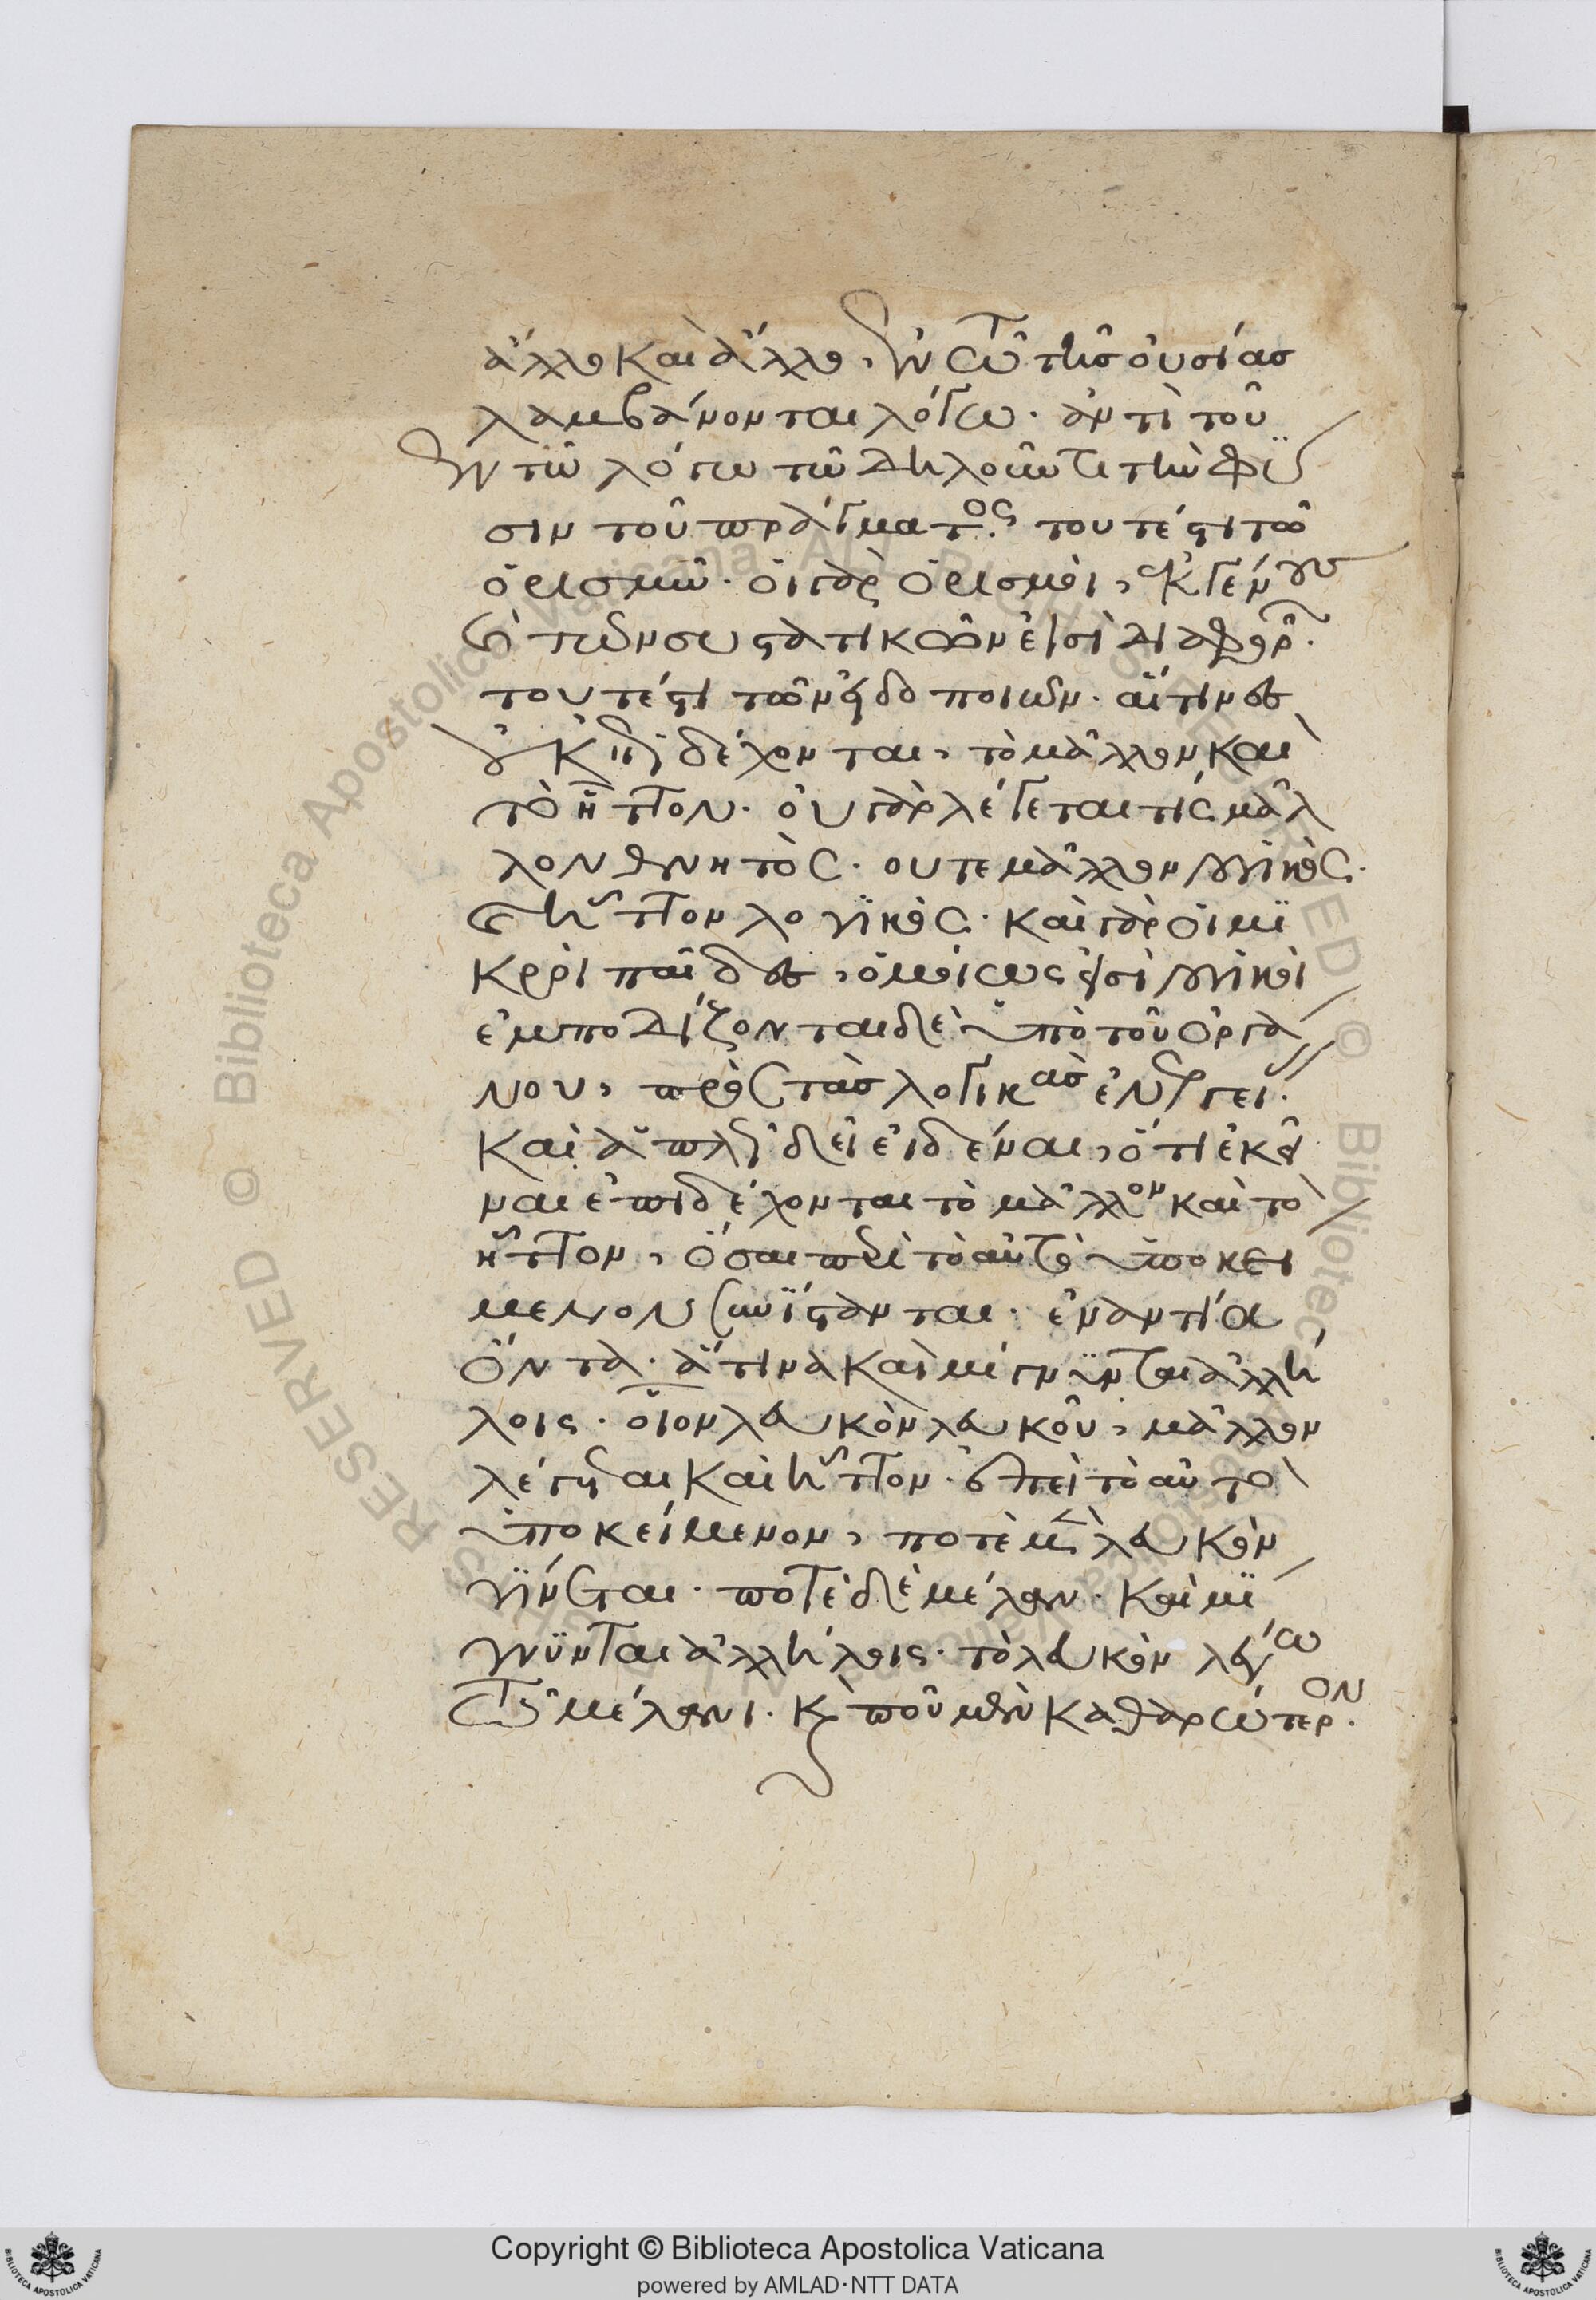 ἄλλο καὶ ἄλλο, ἐν τῶ τῆς οὐσίας
λαμβάνονται λόγω. ἀντὶ τοῦ
ἐν τῶ λόγω τῶ δηλοῦντι τὴν φύ
σιν τοῦ πράγματος. τουτέστι τῶ
ὁρισμῶ. οἱ γὰρ ὁρισμοὶ, ἐκ γένους
καὶ τῶν συστατικῶν εἰσὶ διαφορῶν.
τουτέστι τῶν εἰδοποιῶν. αἵτινες
οὐκ ἐπιδέχονται, τὸ μᾶλλον καὶ
τὸ ἧττον. οὐ γὰρ λέγεται τίς μᾶλ
λον θνητὸς. ουτε μᾶλλον λογικὸς.
ἢ ἧττον λογικὸς. καὶ γὰρ οἱ μι
κροὶ παῖδες, ὁμοίως εἰσὶ λογικοὶ
ἐμποδίζονται δὲ ὑπὸ τοῦ ὀργά
νου, πρὸς τὰς λογικὰς ἐνεργείας.
καὶ ἁπλῶς δεῖ εἰδέναι, ὅτι ἐκεῖ
ναι ἐπιδέχονται τὸ μᾶλλον καὶ τὸ
ἧττον, ὅσαι περὶ τὸ αὐτὸ ὑποκεί
μενον συνίστανται. ἐναντία
ὄντα. ἅτινα καὶ μίγνυνται ἀλλή
λοις. οἷον λευκὸν λευκοῦ, μᾶλλον
λέγεται καὶ ἧττον. ἐπεὶ τὸ αὐτὸ
ὑποκείμενον, ποτὲ μὲν λευκὸν
γίνεται. ποτὲ δὲ μέλαν. καὶ μί
γνυνται ἀλλήλοις. τὸ λευκὸν λέγω
τῶ μέλανι. κὰι ποῦ μὲν καθαρώτερον.
Copyright © Biblioteca Apostolica Vaticana
powered by AMLAD·NTT DATA